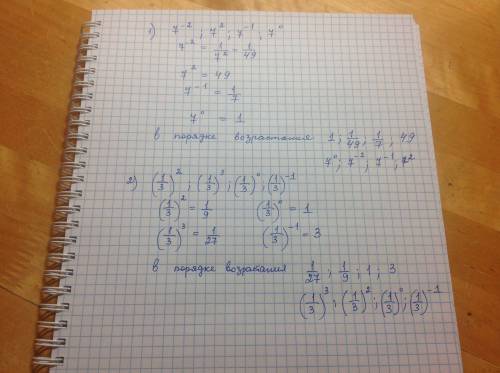 1) 7⁻² ; 7² ; 7⁻¹ ; 7⁰
7⁻² = 1/7² = 1/49
7² = 49
7⁻¹ = 1/7
7⁰ = 1
в порядке возрастания 1 ; 1/49 ; 1/7 , 49
7⁰ ; 7⁻² ; 7⁻¹ ; 7²
2) (1/3)² ; (1/3)³ ; (1/3)⁰ ; (1/3)⁻¹
(1/3)² = 1/9 (1/3)⁰ = 1
(1/3)³ = 1/27 (1/3)⁻¹ = 3
в порядке возратания 1/27 ; 1/9 ; 1 ; 3
(1/3)³ ; (1/3)² ; (1/3)⁰ ; (1/3)⁻¹